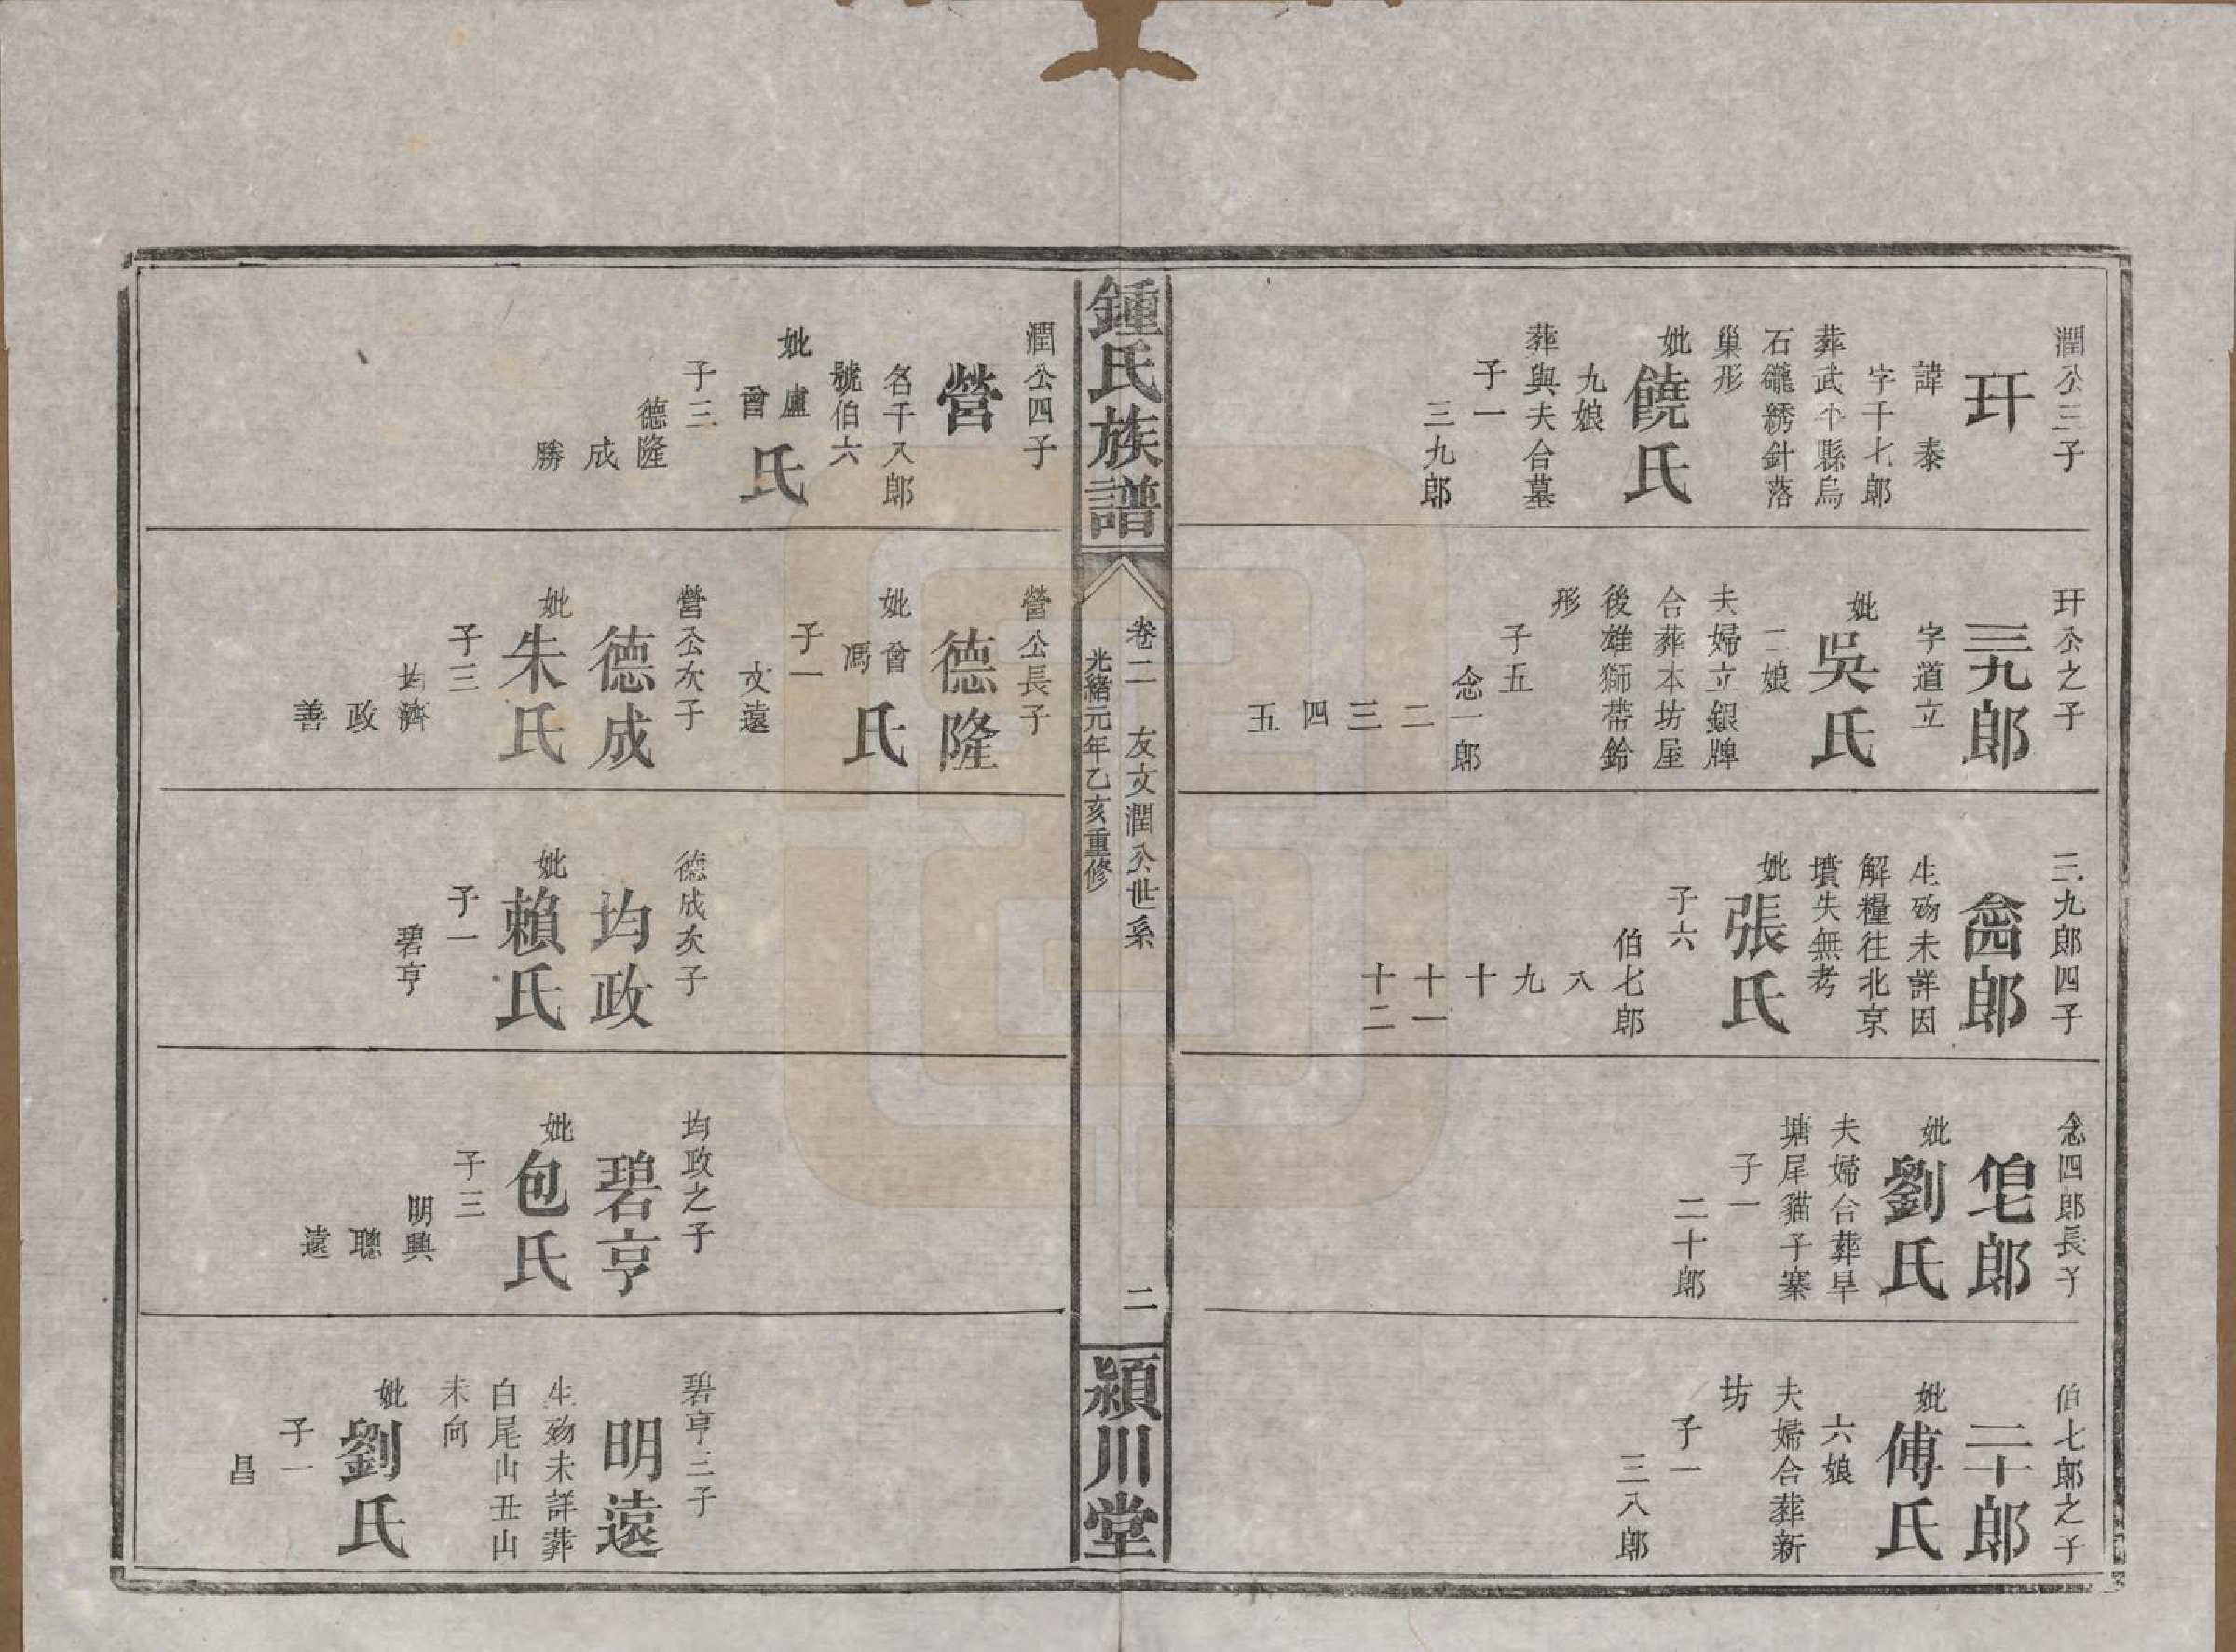 潤公三子
玕
諱泰
字千七郎
葬武平縣烏
石𥗴綉針落
巢形
妣饒氏
九娘
葬與夫合墓
子一
三九郎
玕公之子
三九郎
字道立
妣吳氏
二娘
夫婦立銀牌
合葬本坊屋
後雄獅帶鈴
形
子五
念一郎
二
三
四
五
三九郎四子
念四郎
生歿未詳因
解糧往北京
墳失無考
妣張氏
子六
伯七郎
八
九
十
十一
十二
念四郎長子
伯七郎
妣劉氏
夫婦合葬旱
塘犀貓子寨
子一
二十郎
伯七郎之子
二十郎
妣傅氏
六娘
夫婦合葬新
坊
子一
三八郎
鍾氏族譜
卷二 友文潤公世系
光緒元年乙亥重修
二
潁川堂
潤公四子
營
名千八郎
號伯六
妣盧曾氏
子三
德隆
成
勝
營公長子
德隆
妣曾馮氏
子一
文遠
營公次子
德成
妣朱氏
子三
均濟
政
善
德成次子
均政
妣賴氏
子一
碧亨
均政之子
碧亨
妣包氏
子三
明興
聰
遠
碧亨三子
明遠
生歿未詳葬
白尾山丑山
未向
妣劉氏
子一
昌